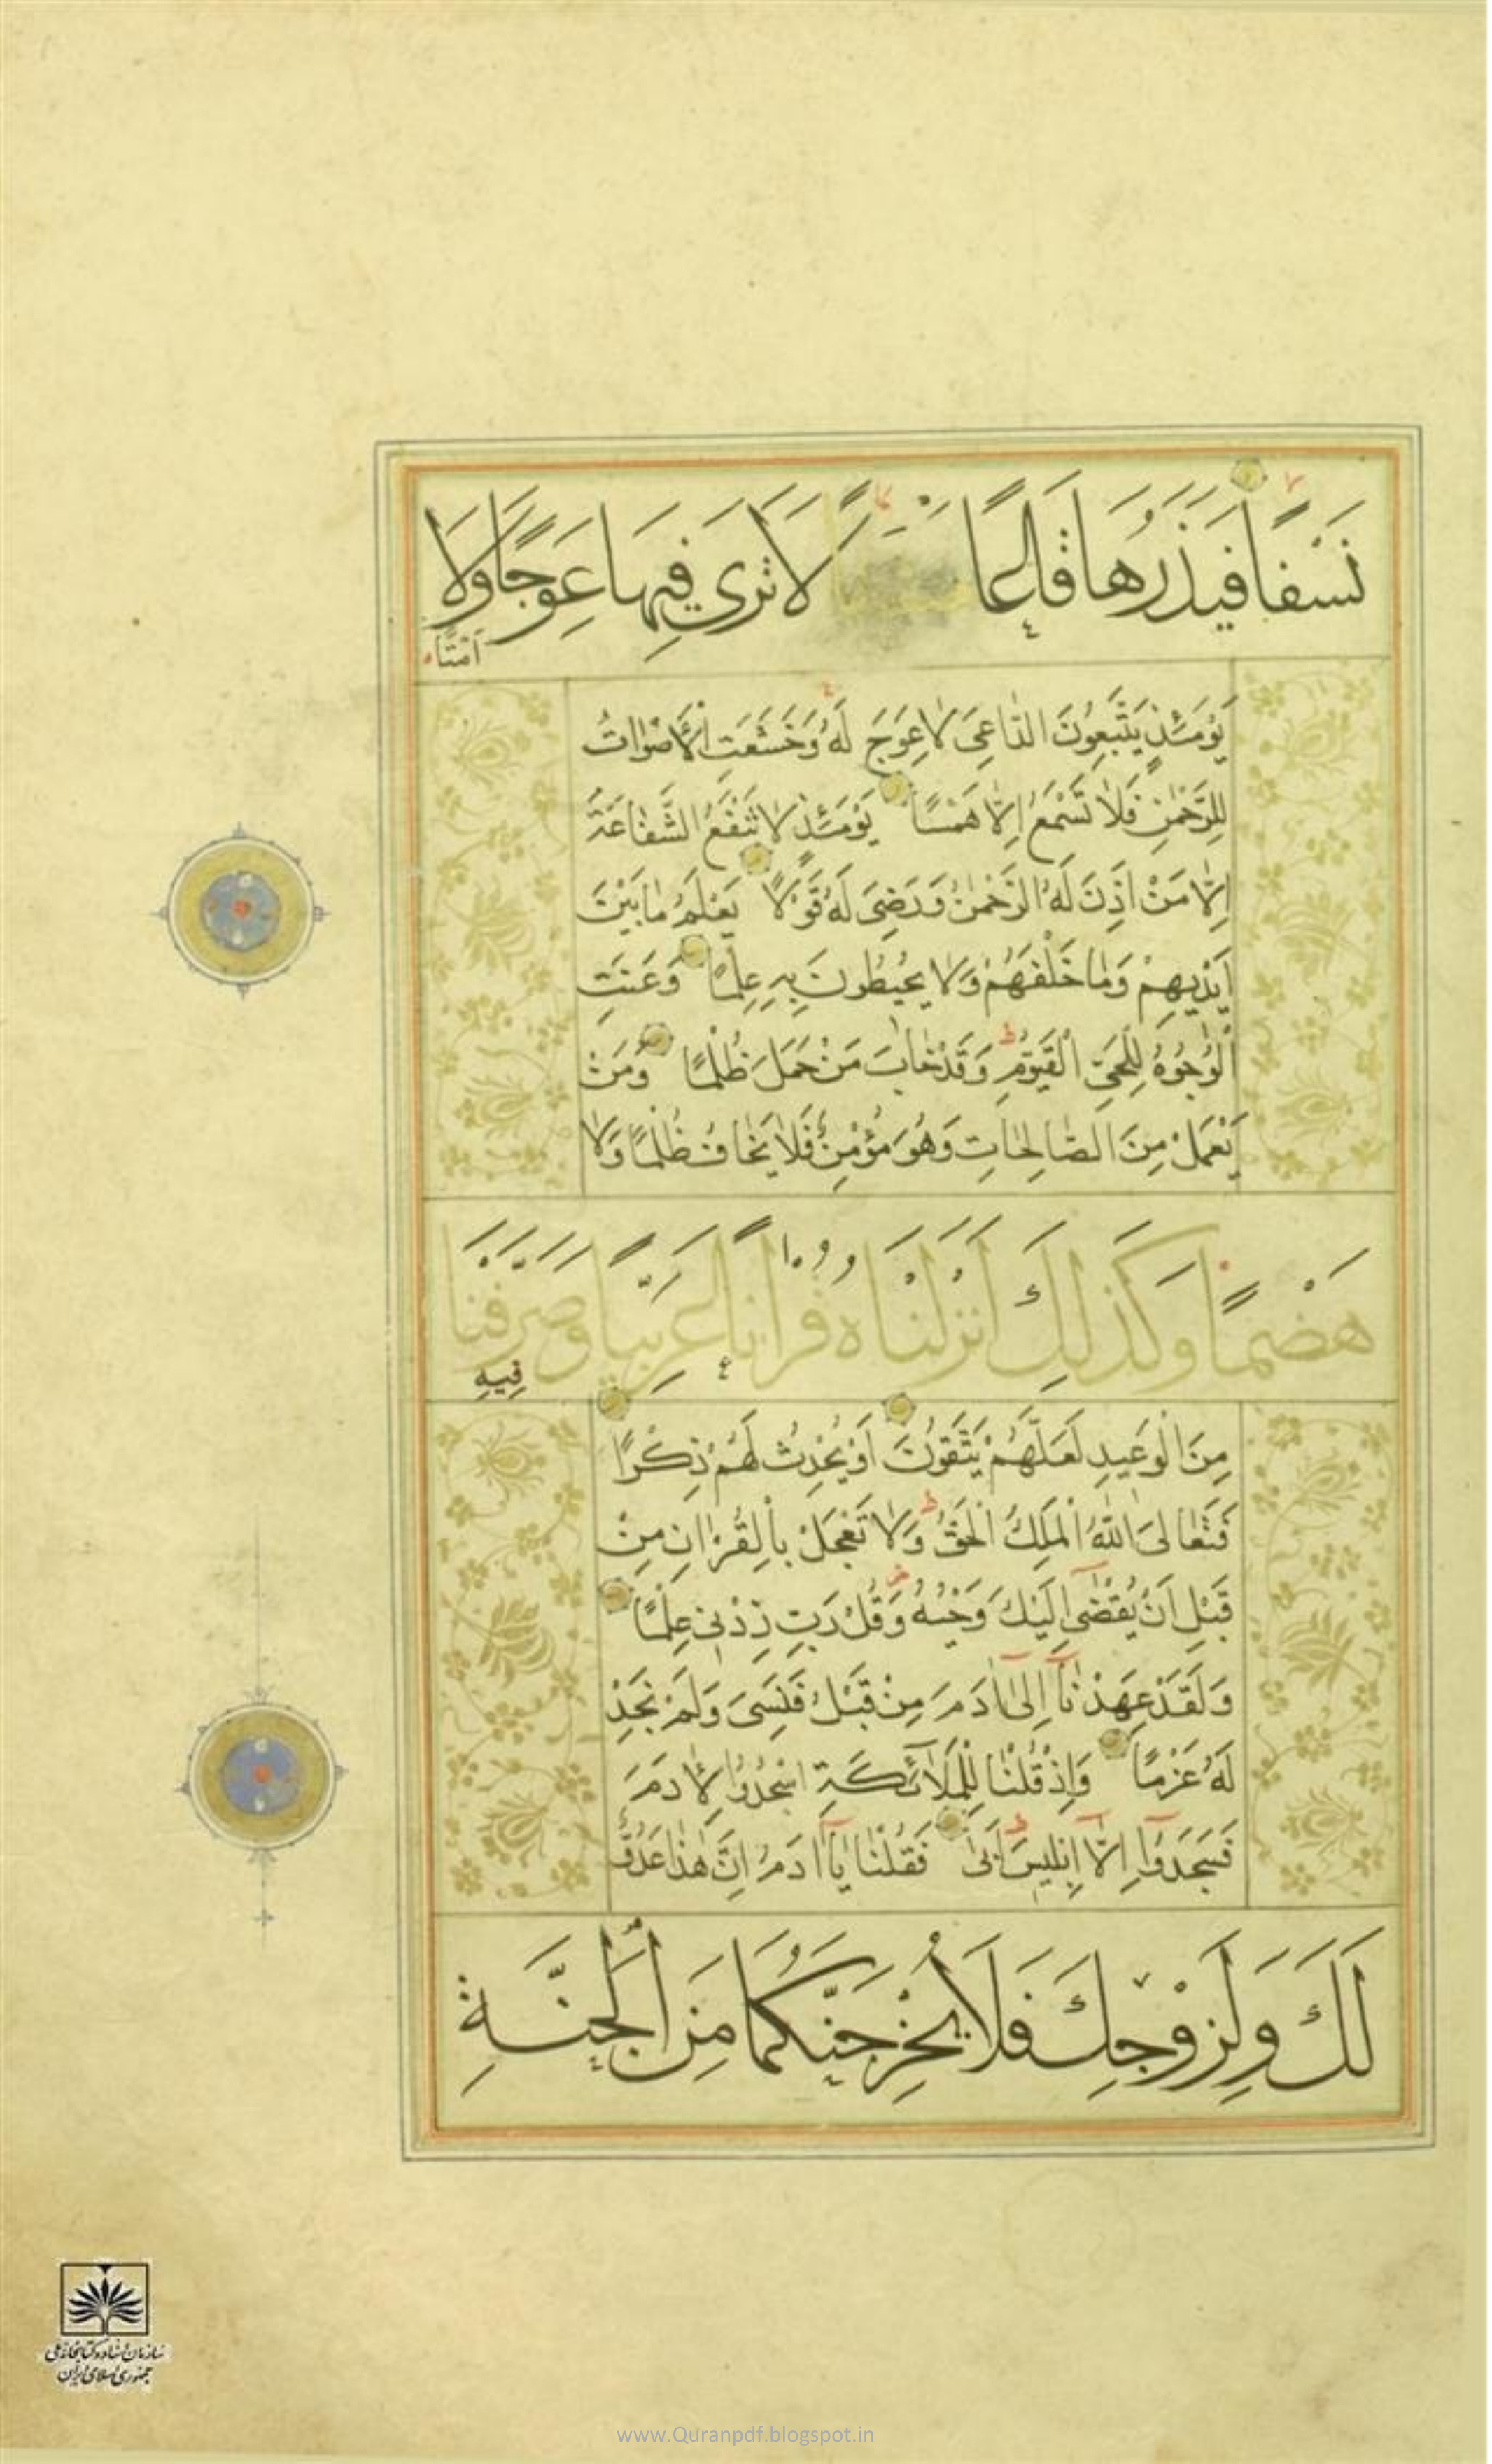 نَسْفًا فَيَذَرُهَا قَاعًا لَا تَرَىٰ فِيهَا عِوَجًا وَلَا
أَمْتًا
يَوْمَئِذٍ يَتَّبِعُونَ الدَّاعِيَ لَا عِوَجَ لَهُ وَخَشَعَتِ الْأَصْوَاتُ
لِلرَّحْمٰنِ فَلَا تَسْمَعُ إِلَّا هَمْسًا يَوْمَئِذٍ لَا تَنْفَعُ الشَّفَاعَةُ
إِلَّا مَنْ أَذِنَ لَهُ الرَّحْمٰنُ وَرَضِيَ لَهُ قَوْلًا يَعْلَمُ مَا بَيْنَ
أَيْدِيهِمْ وَمَا خَلْفَهُمْ وَلَا يُحِيطُونَ بِهِ عِلْمًا وَعَنَتِ
الْوُجُوهُ لِلْحَيِّ الْقَيُّومِ وَقَدْ خَابَ مَنْ حَمَلَ ظُلْمًا وَمَنْ
يَعْمَلْ مِنَ الصَّالِحَاتِ وَهُوَ مُؤْمِنٌ فَلَا يَخَافُ ظُلْمًا وَلَا
هَضْمًا وَكَذَٰلِكَ أَنْزَلْنَاهُ قُرْآنًا عَرَبِيًّا وَصَرَّفْنَا
فِيهِ
مِنَ الْوَعِيدِ لَعَلَّهُمْ يَتَّقُونَ أَوْ يُحْدِثُ لَهُمْ ذِكْرًا
فَتَعَالَى اللَّهُ الْمَلِكُ الْحَقُّ وَلَا تَعْجَلْ بِالْقُرْاٰنِ مِنْ
قَبْلِ أَنْ يُقْضٰى إِلَيْكَ وَحْيُهُ وَقُلْ رَبِّ زِدْنِي عِلْمًا
وَلَقَدْ عَهِدْنَا إِلٰى اٰدَمَ مِنْ قَبْلُ فَنَسِيَ وَلَمْ نَجِدْ
لَهُ عَزْمًا وَإِذْ قُلْنَا لِلْمَلَائِكَةِ اسْجُدُوا لِاٰدَمَ
فَسَجَدُوا إِلَّا إِبْلِيسَ أَبٰى فَقُلْنَا يَا اٰدَمُ إِنَّ هٰذَا عَدُوٌّ
لَكَ وَلِزَوْجِكَ فَلَا يُخْرِجَنَّكُمَا مِنَ الْجَنَّةِ
سازمان اسناد و کتابخانه ملی
جمهوری اسلامی ایران
www.Quranpdf.blogspot.in